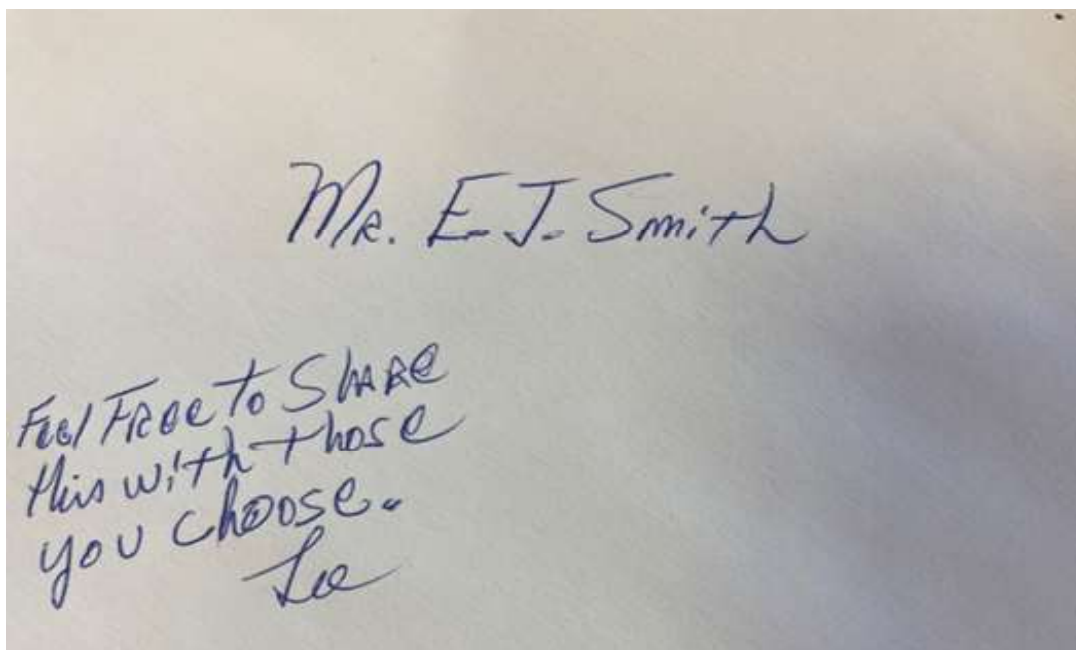 Mr. E. J. Smith
Feel Free to Share
this with those
you choose.
Lee